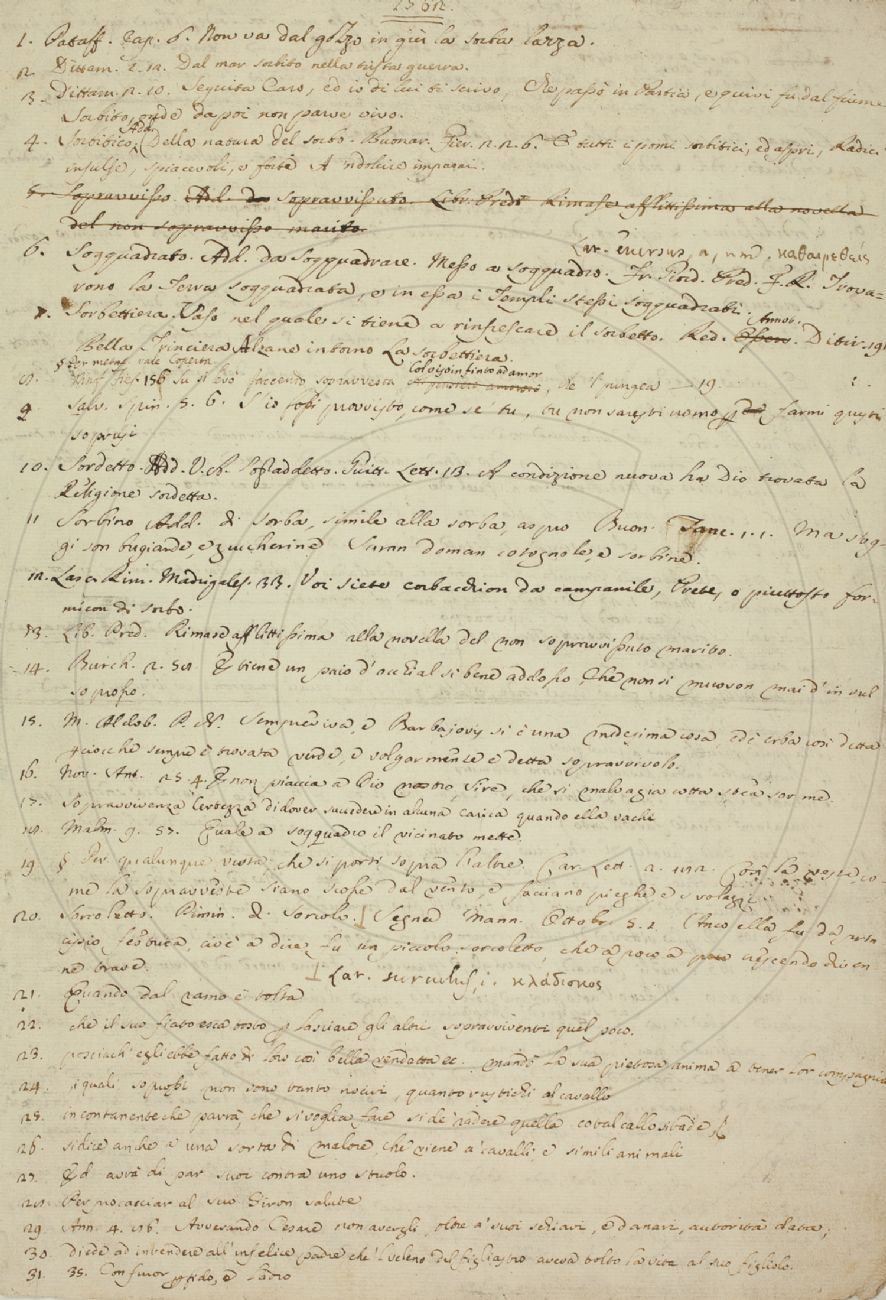 1. Pataff. Cap. 6. Non va dal gozzo in giù la sorba lazza.
2. Dittam. 2. 12. Dal mar sorbito nella trista guerra.
3. Dittam. 2. 10. Seguita Caro, ed io di lui ti scrivo, Che passò in Partia, e quivi fu dal fiume
Sorbito, onde dapoi non parve vivo.
4. Sorbitico Add. Della natura del sorbo. Buonar. Fier. 2. 2. 6. E tutti i pomi sorbitici, ed aspri, Radici
insulse, spiacevoli, e forti A 'ndolcire imparai.
5. Sopravvisso. Add. da sopravvissuto. Libr. Pred. Rimase afflittissima alla novella
del non sopravvisso marito.
Lat. eversus, a, um, καθαιρεθείς
6. Soqquadrato. Add. da Soqquadrare. Messo a soqquadro. Fr. Giord. Pred. F. R. Trova-
rono la Terra soqquadrata, e in essa i Templi stessi soqquadrati.
7. Sorbettiera. Vaso nel quale si tiene a rinfrescare il sorbetto. Red. Annot. Ditir. 19
Bella Trinciera Alzane intorno La sorbettiera.
§ Per metaf. vale Coperta
8. 156 Su si levò faccendo sopravvesta Col viso infinto ad amor, che 'l pungea 19.
9. Salv. Spin. 5. 6. S'io fossi provvisto, come se' tu, tu non saresti uomo da farmi questi
soprusi
10. Sordetto. Add. V. A. Sozzaddetto. Guitt. Lett. 13. A condizione nuova ha Dio trovata la
Religione sordetta.
11 Sorbino Add. di Sorba, simile alla sorba, aspro Buon. Tanc. 1. 1. Ma s'og-
gi son bugiarde, e zuccherine Saran doman cotognole, e sorbine.
12. Lasc. Rim. Madrigales. 33. Voi siete corbacchion da campanile, Prete, o piuttosto for-
micon di sorbo.
13. Lib. Pred. Rimase afflittissima alla novella del non sopravvissuto marito.
14. Burch. 2. 58. E tiene un paio d'occhial sì bene addosso Che non si muovon mai d'in sul
soprosso.
15. M. Aldob. P. N. Sempreviva, e Barbajovis si è una medesima cosa, ed è erba così detta
perciocchè sempre è trovata verde, e volgarmente è detta sopravvivolo.
16. Nov. Ant. 25. 4. E non piaccia a Dio nostro, Sire, che sì malvagia cotta stea sor me.
17. Sopravvivenza Certezza di dover succedere in alcuna carica quando ella vachi
18. Malm. 9. 57. Quale a soqquadro il vicinato mette.
19 § Per qualunque vesta, che si porti sopra l'altre. Car. Lett. 2. 182. Così la veste, co-
me la sopravveste siano scosse dal vento, e facciano pieghe e svolazzi
20. Sorcoletto. Dimin. di Sorcolo. Segner. Mann. Ottobr. 5. 2. Anco ella fu da prin-
cipio festuca, cioè a dire fu un piccolo sorcoletto, che a poco a poco crescendo diven-
ne trave. Lat. surculus, i. κλάδισκος
21. Quando dal ramo è tolta
22. che il suo fiato esca tosto p. lasciare gli altri sopravviventi quel poco.
23. posciach' egli ebbe fatto di loro così bella vendetta ec. mandò la sua pietosa anima a tener lor compagnia
24. i quali soprossi non sono tanto nocivi, quanto rustichi al cavallo
25. incontanente che parrà, che si voglia fare si de' radere quella cotal callosi
26. si dice anche a una sorta di malore, che viene a' cavalli, e simili animali
27. Ed avrà di par suoi contra uno stuolo.
28. Per procacciar al suo Giron salute
29. Ann. 4. 96. Avverando Cesare non avergli, oltre a' suoi schiavi, e danari, autorità data;
30. Diede ad intendere all' infelice padre che 'l veleno del figliastro aveva tolto la vita al suo figliolo.
31. 35. Con furor grido, e ladro